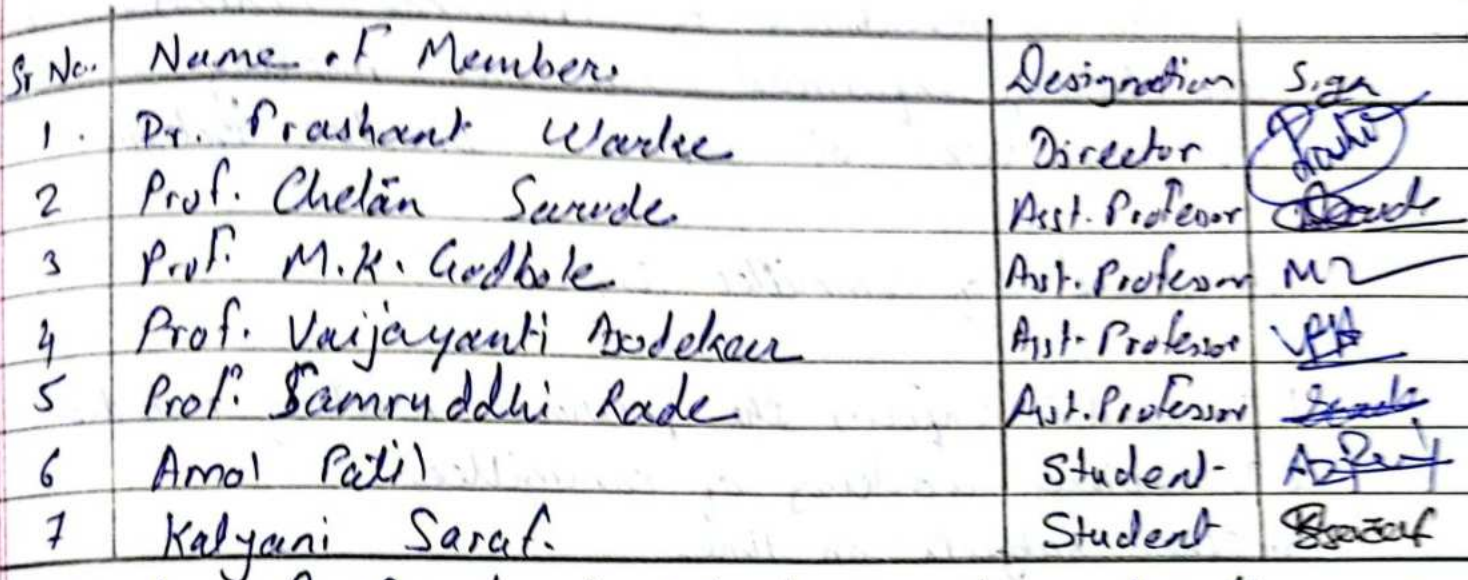 Sr No. Name of Members Designation Sign
1. Dr. Prashant Warke Director
2 Prof. Chetan Sarode Asst. Professor
3 Prof. M.K. Godbole Asst. Professor
4 Prof. Vaijayanti Asst. Professor
5 Prof. Samruddhi Rade Asst. Professor
6 Amol Patil Student
7 Kalyani Saraf. Student